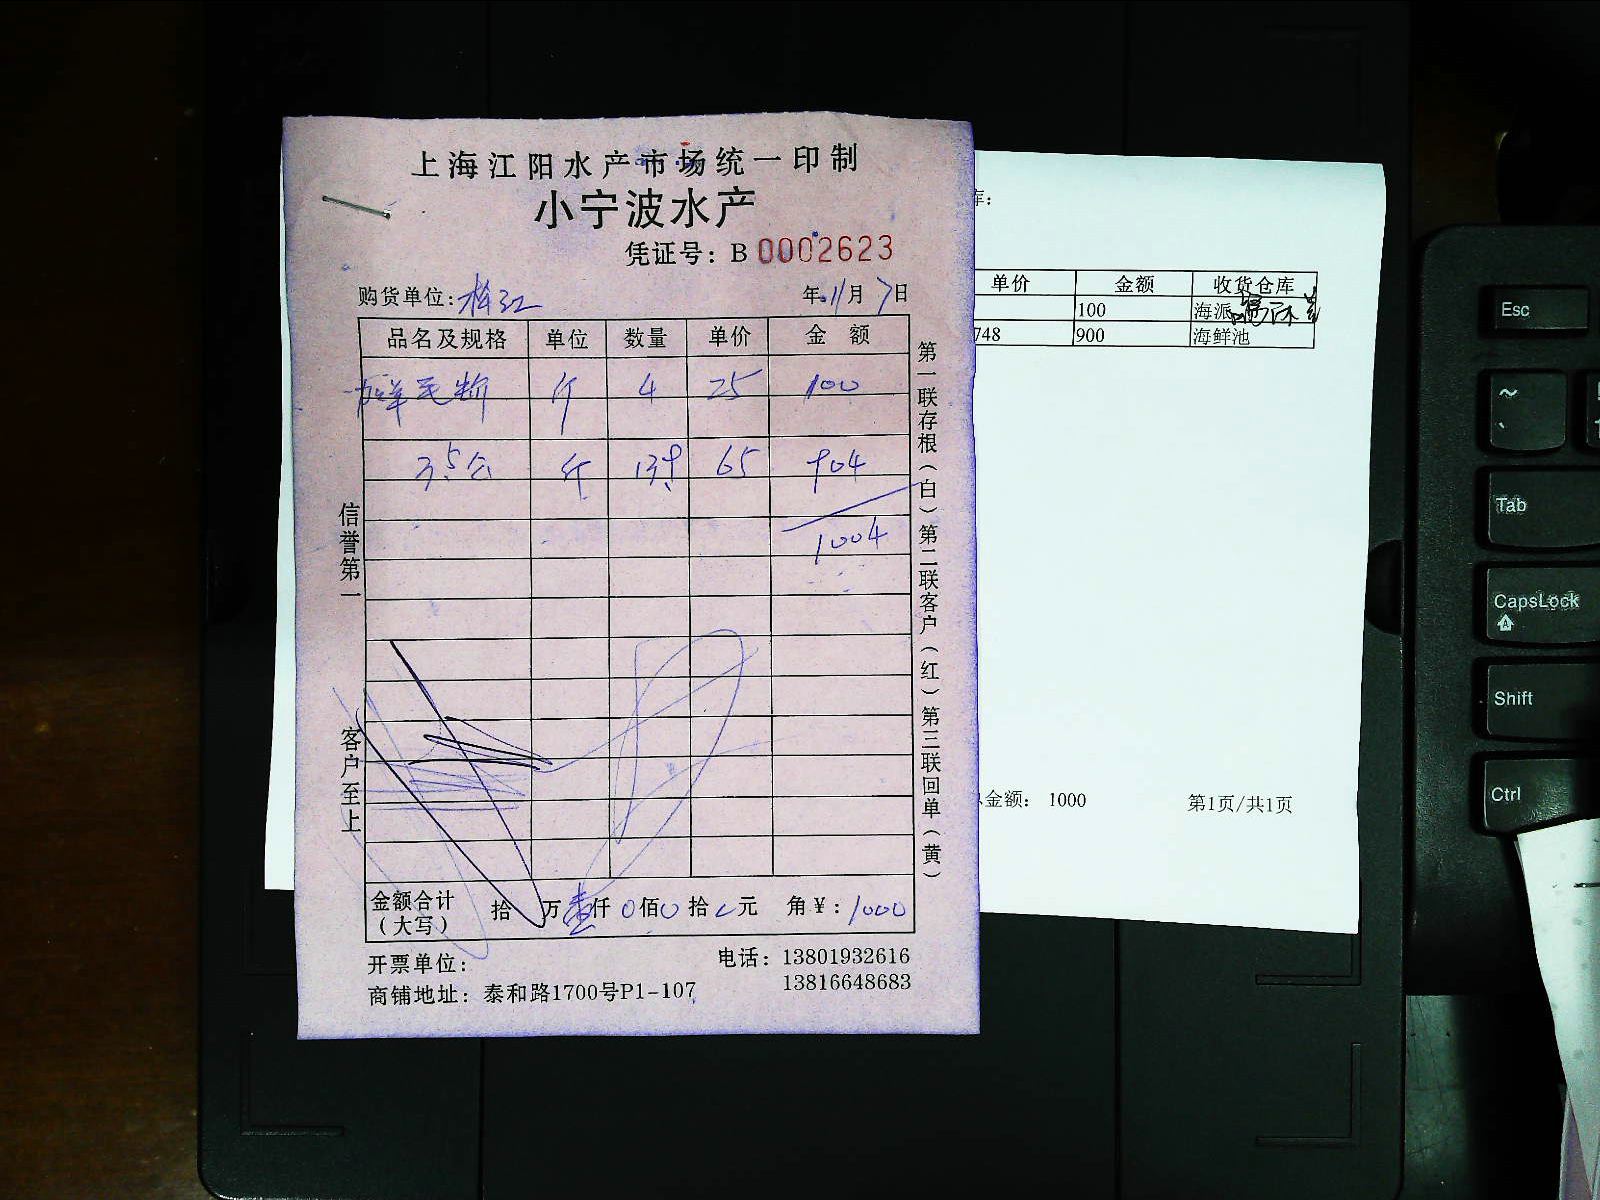 上海江阳水产市场统一印制
小宁波水产
凭证号：B 0002623
购货单位：
年 11月 7日
品名及规格 单位 数量 单价 金 额
斤 4 25 100
斤 65 904
1004
信誉第一
客户至上
第一联存根（白）第二联客户（红）第三联回单（黄）
金额合计（大写） 拾 万壹仟0佰0拾 元 角￥：1000
开票单位：
商铺地址：泰和路1700号P1-107
电话：13801932616
13816648683
库：
单价 金额 收货仓库
100 海派
748 900 海鲜池
金额： 1000 第1页/共1页
Esc
~
Tab
CapsLock
A
Shift
Ctrl